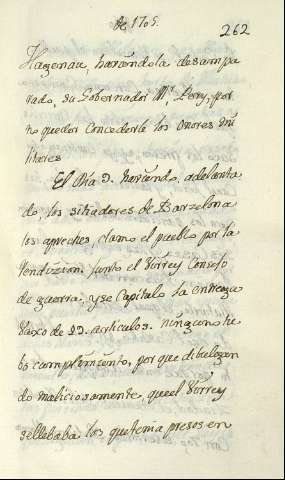 de 1705.
262
Hagenau, haviendola desampa
rado, su Gobernador Mr. Pery, por
no querer Concederle los Onores Mi
litares
El Dia 9. haviendo, adelanta
do, los sitiadores de Barzelona
los aproches, clamo el pueblo por la
Rendizion. Junto el Virrey Consejo
de guerra, y se Capitulo la entrega
vaxo de articulos. ninguno tu
bo cumplimiento, por que dibulgan
do maliciosamente, que el Virrey
se llebaba los que tenia presos en